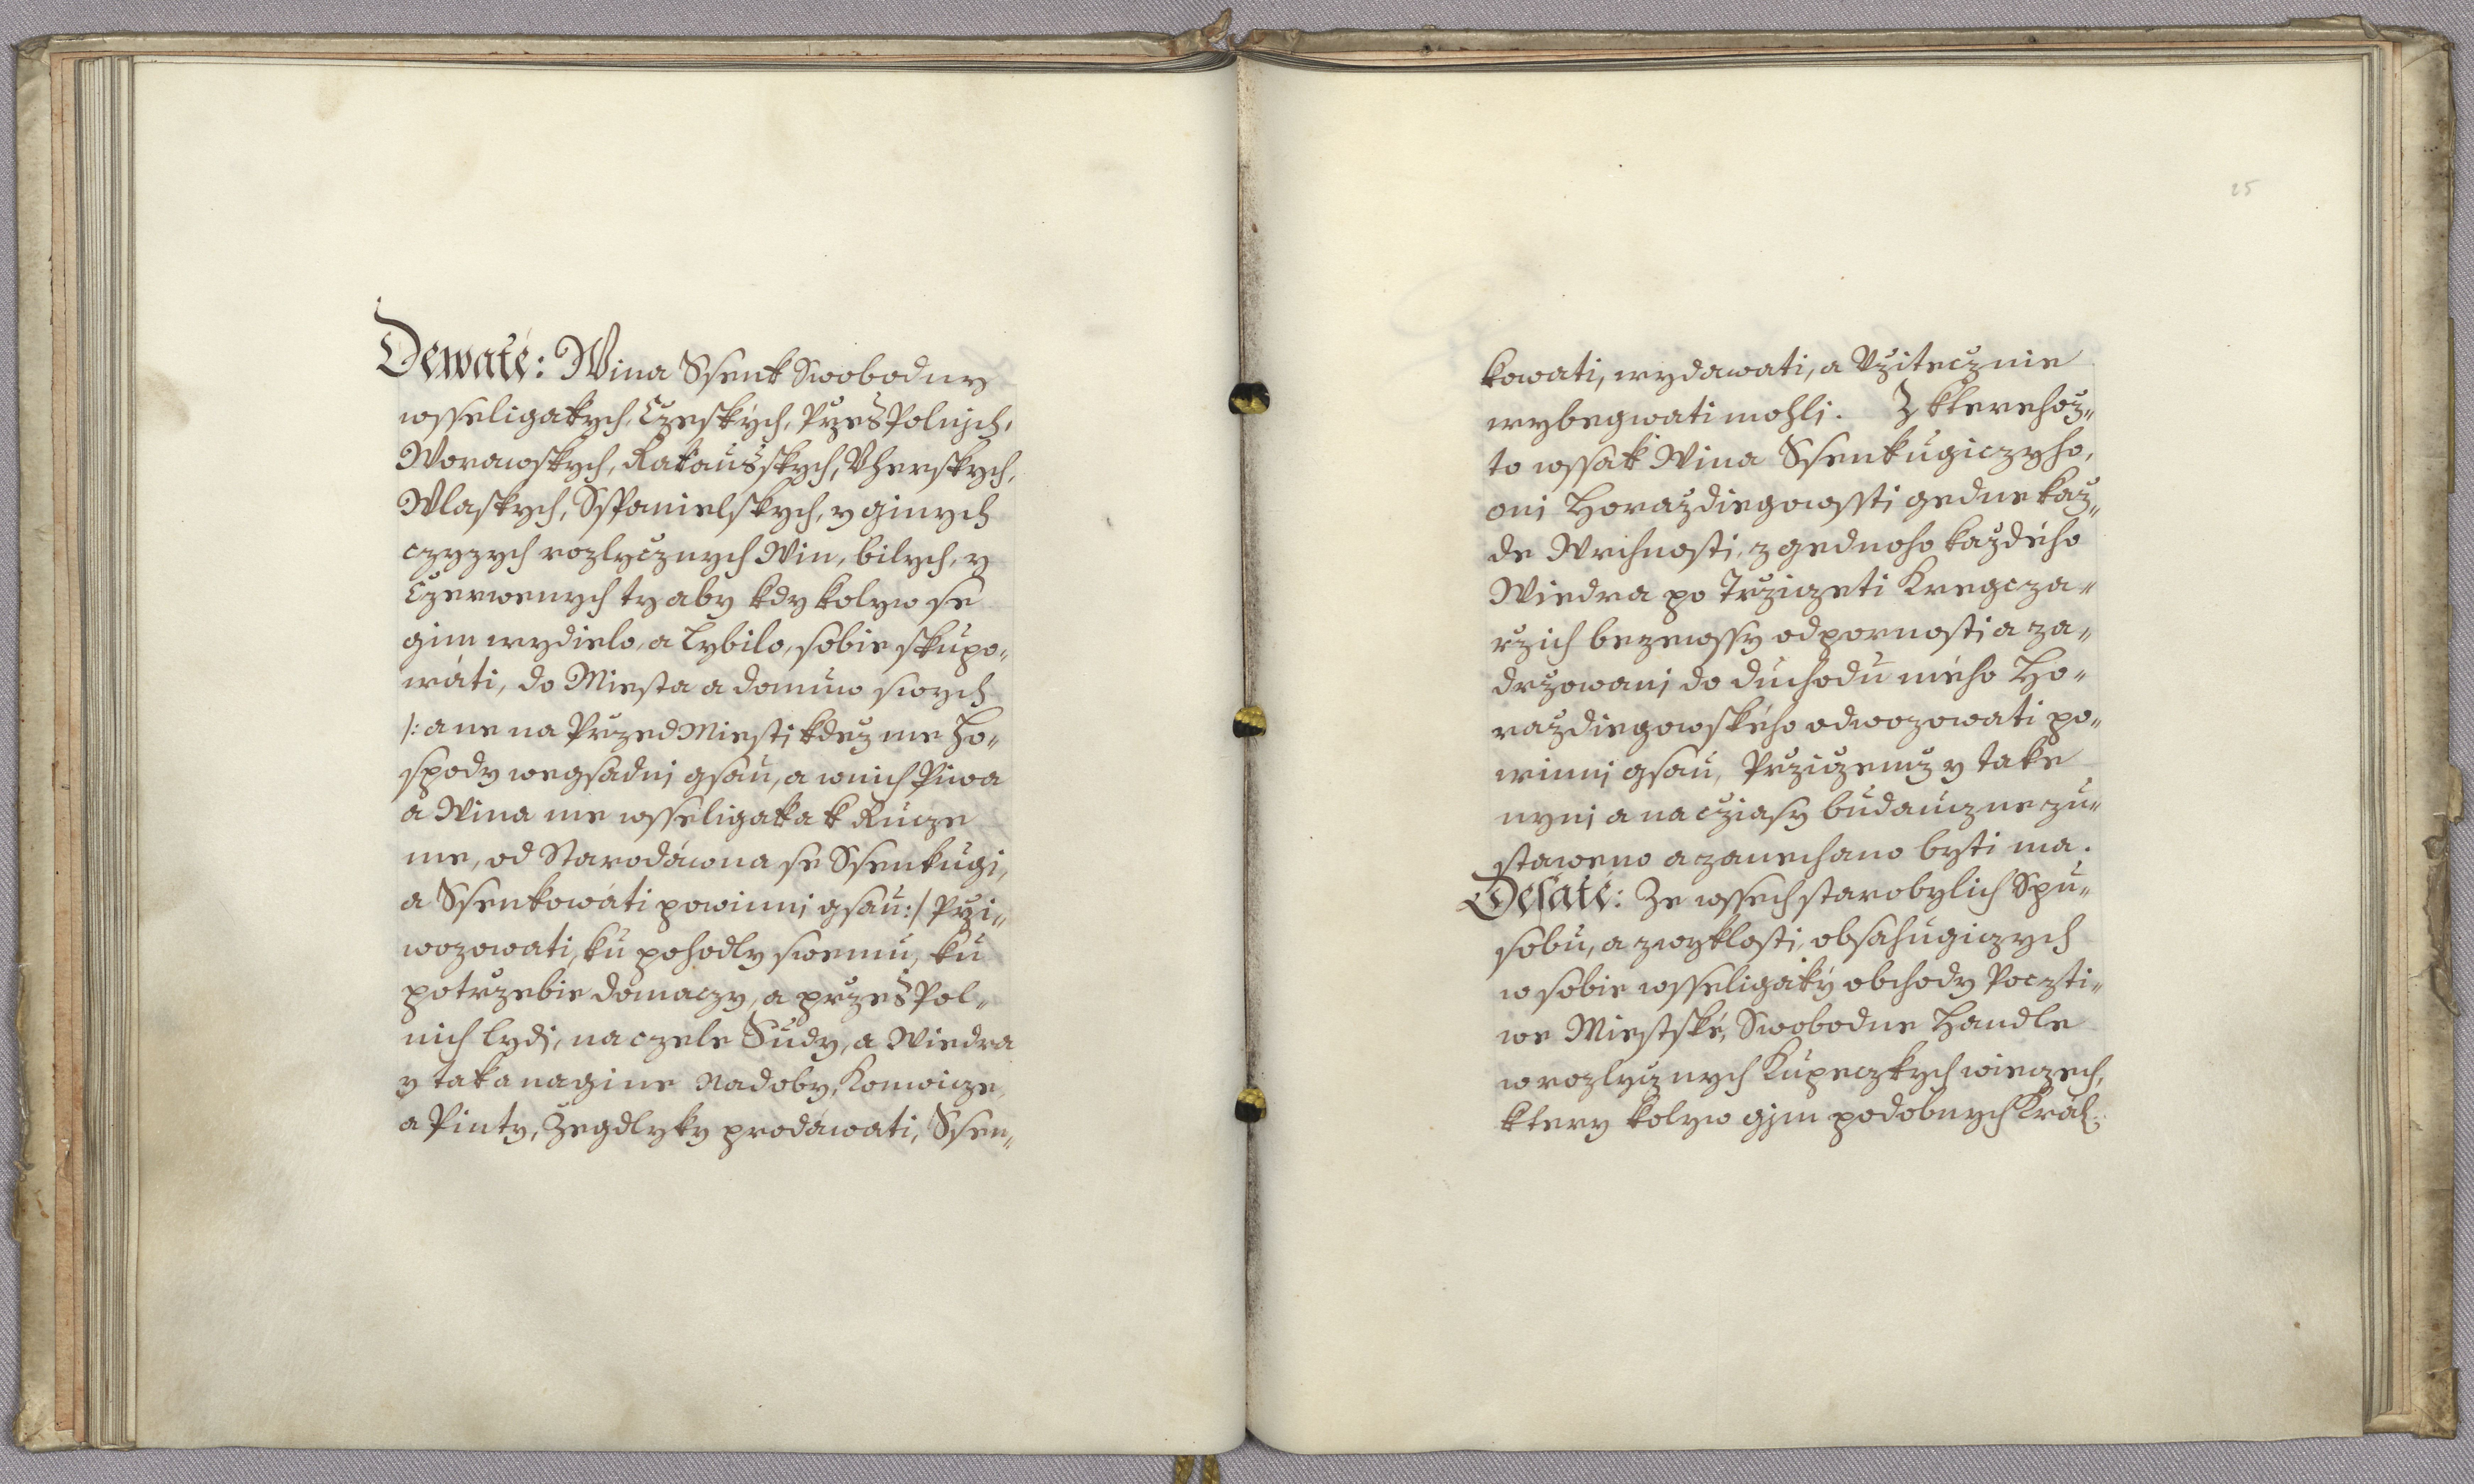 Dewaté: Wina Ssenk Swobodny
wsseligakych, Czeských, PrzesPolnjch,
Morawskych, Rakausskych, Vherskych,
Wlaskych, Sspanielskych, y ginych
czyzych rozlycznych Win, bilych, y
Czerwenych ty aby kdykolyw se
gim wydielo, a lybilo, sobie skupo„
wáti, do Miesta a domuw swych
/: a ne na PrzedMiesti kdez me Ho„
spody wegsadnj gsau, a wnich Piwa
a Wina me wsseligaka k Rucze
me, od Starodáwna se Ssenkugi,
a Ssenkowáti powinnj gsau :/ Przi„
wozowati, ku pohodly swemu, ku
potrzebie domaczy, a przesPol„
nich lydj, na czele Sudy, a Wiedra
y taka nagine Nadoby, Konwicze,
a Pinty, Zegdlyky prodáwati, Ssen„
25
kowati, wydawati, a Vzitecznie
wybegwati mohlj. Z kterehoz„
to wssak Wina Ssenkugiczyho,
onj Horazdiegowsstj gedne kaz„
de Wrchnosti, z gednoho kazdého
Wiedra po Trziczeti Kregcza„
rzich bezewssy odpornosti a za„
drzowanj do duchodu mého Ho„
razdiegowského odwozowati po„
winnj gsau, Prziczemz y take
nynj a na cziasy budauczne zu„
staweno a zanechano bysti ma.
Desaté: Ze wssech starobylich Spu„
sobu, a zwyklosti, obsahugiczych
w sobie wsseligaký obchody Poczti„
we Miestské, Swobodne Handle
w rozlycznych Kupeczkych wieczech,
ktery kolyw gjm podobnych Kral: